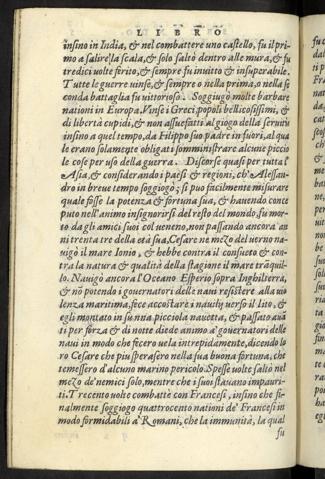 LIBRO
insino in India, & nel combattere uno castello, fu il pri
mo a salire la scala, & solo saltò dentro alle mura, & fu
tredici volte ferito, & sempre fu inuitto & insuperabile.
Tutte le guerre uinse, & sempre o nella prima, o nella se
conda battaglia fu uittorioso. Soggiugò molte barbare
nationi in Europa. Vinse i Greci popoli bellicosissimi, &
di libertà cupidi, & non assuefatti al giogo della seruitu
insino a quel tempo, da Filippo suo padre in fuori, al qua
le erano solamente obligati somministrare alcune piccio
le cose per uso della guerra. Discorse quasi per tutta l'
Asia, & considerando i paesi & regioni, ch'Alessan
dro in breue tempo soggiogò; si puo facilmente misurare
quale fosse la potenza & fortuna sua, & hauendo conce
puto nell'animo insignorirsi del resto del mondo, fu mor
to da gli amici suoi col ueneno, non passando ancora an
ni trenta tre della età sua. Cesare ne mezo del uerno na-
uigò il mare Ionio, & hebbe contra il consueto & con-
tra la natura & qualità della stagione il mare tráquil-
lo. Nauigò ancora l'Oceano Esperio sopra Inghilterra,
& nõ potendo i gouernatori delle naui resistere alla uio
lenza marittima, fece accostare i nauilij uerso il lito, &
egli montato in su una picciola nauetta, & passato auã
ti per forza & di notte diede animo a' gouernatori delle
naui in modo che fecero uela intrepidamente, dicendo lo
ro Cesare che piu sperasero nella sua buona fortuna, che
temessero d'alcuno marino pericolo. Spesse uolte saltò nel
mezo de' nemici solo, mentre che i suoi stauano impauri-
ti. Trecento uolte combattè con Francesi, insino che fi-
nalmente soggiogò quattrocento nationi de' Francesi in
modo formidabili a' Romani, che la immunità, la qual
fu